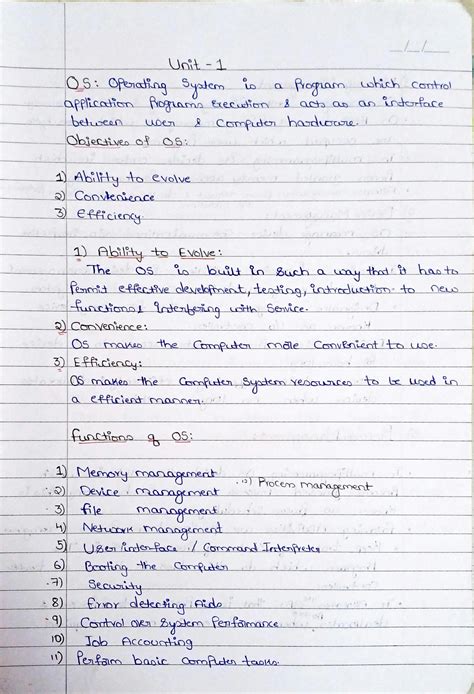 __/__/__
Unit - 1
OS: Operating System is a Program which control
application Programs execution & acts as an interface
between user & Computer hardware.
Objectives of OS:
1) Ability to evolve
2) Convenience
3) Efficiency
1) Ability to Evolve:
The OS is built in such a way that it has to
Permit effective development, testing, introduction to new
functions interfering with Service.
2) Convenience:
OS makes the Computer more Convenient to use.
3) Efficiency:
OS makes the Computer System resources to be used in
a efficient manner.
functions of OS:
1) Memory management
12) Process management
2) Device management
3) file management
4) Network management
5) User interface / Command Interpreter
6) Booting the Computer
7) Security
8) Error detecting Aids
9) Control over System Performance
10) Job Accounting
11) Perform basic computer tasks.